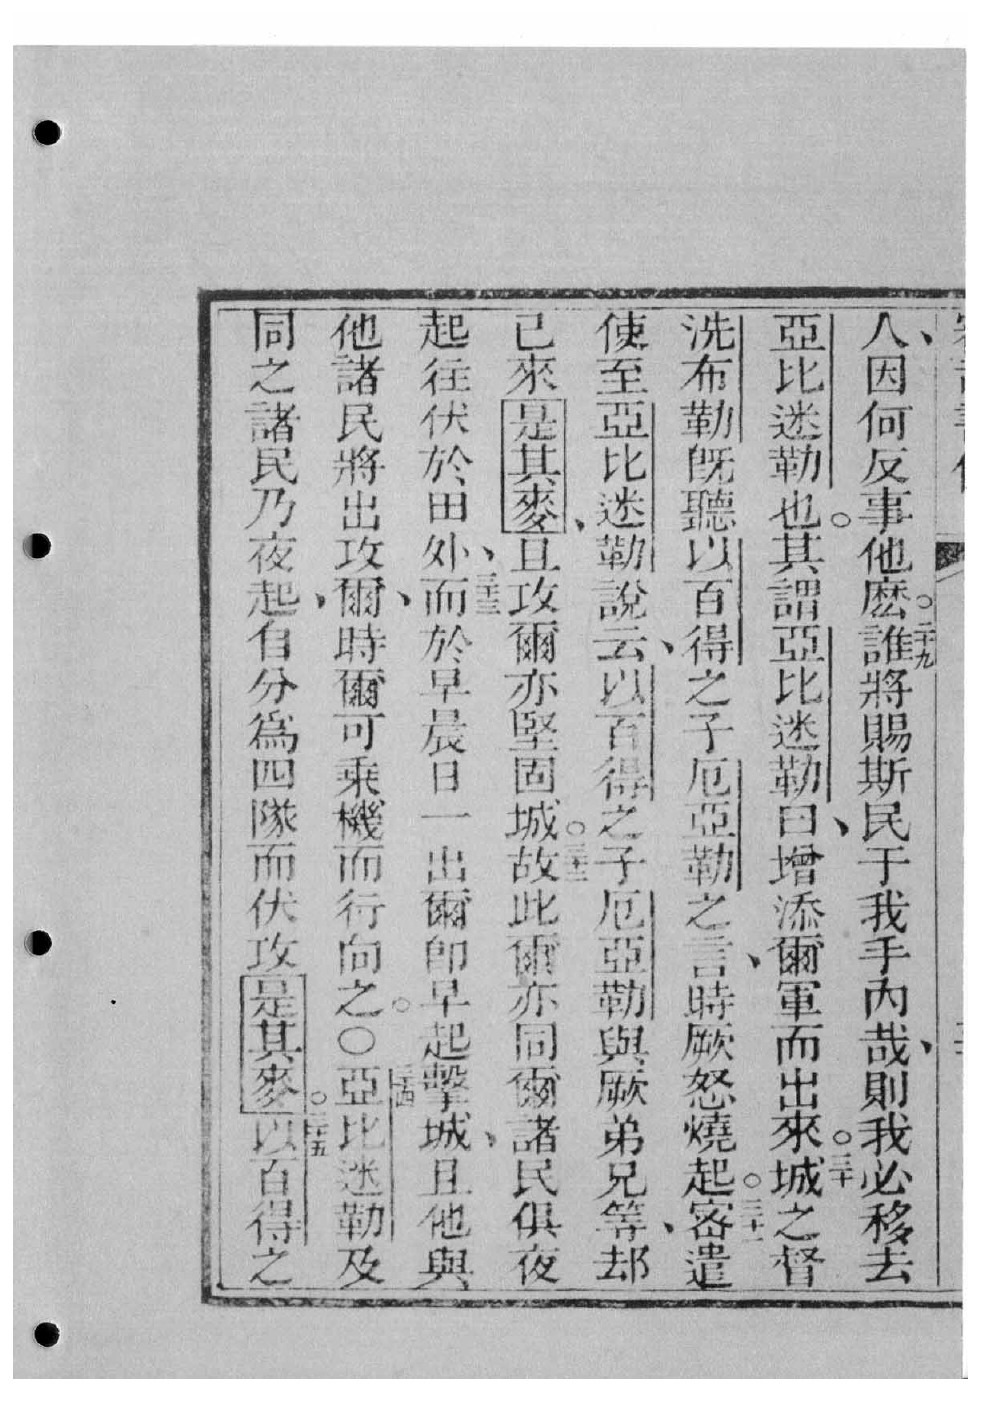 人、因何反事他麽。二十九誰將賜斯民于我手內哉、則我必移去
亞比迷勒也。其謂亞比迷勒曰、增添爾軍而出來。三十城之督
洗布勒既聽以百得之子厄亞勒之言、時厥怒燒起。三十一密遣
使至亞比迷勒說云、以百得之子厄亞勒與厥弟兄等、却
已來是其麥、且攻爾亦堅固城。三十二故此爾亦同爾諸民俱夜
起往伏於田外、三十三而於早晨日一出爾卽早起擊城、且他與
他諸民將出攻爾、時爾可乘機而行向之。〇三十四亞比迷勒及
同之諸民乃夜起、自分爲四隊而伏攻是其麥。三十五以百得之